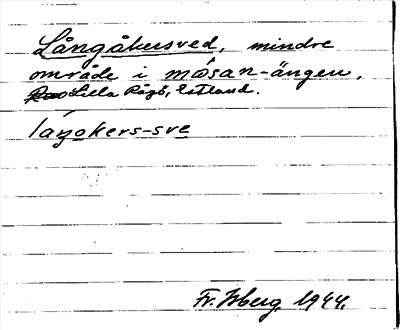 Långåkersved, mindre
område i mósan-ängen,
Lilla Rågö, Estland.
láŋokers-sve
Fr. Isberg, 1944.